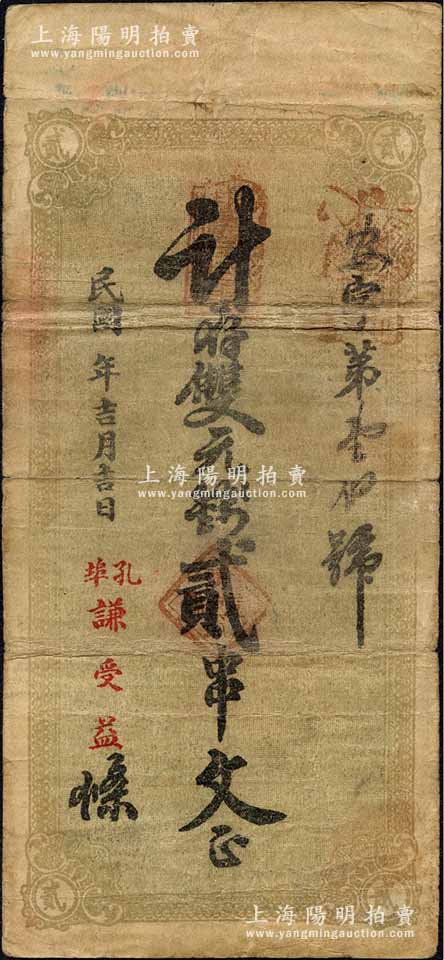 上海陽明拍賣
www.yangmingauction.com
貳
貳
字第壹佰號
計時雙元錢貳串文正
民國 年吉月吉日
孔埠
謙受益
條
上海陽明拍賣
www.yangmingauction.com
貳
貳
上海陽明拍賣
www.yangmingauction.com